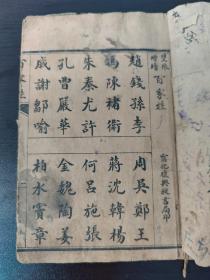 百家姓
趙錢孫李 周吳鄭王
馮陳褚衛 蔣沈韓楊
朱秦尤許 何呂施張
孔曹嚴華 金魏陶姜
戚謝鄒喻 柏水竇章